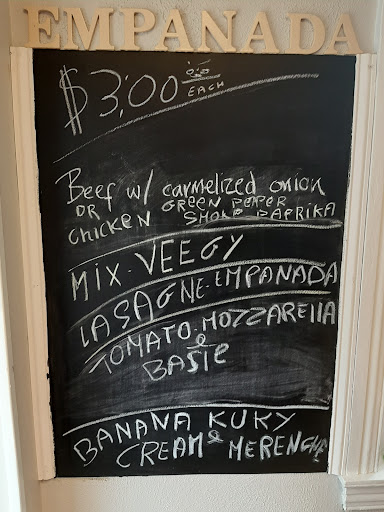 EMPANADA
$3,00 EACH
Beef w/ carmelized onion
OR GREEN PEPER
CHICKEN SMOKD PAPRIKA
MIX-VEEGY
LASAGNE-EMPANADA
TOMATO-MOZZARELLA
&
BASIC
BANANA KUKY
CREAM & MERENGUE